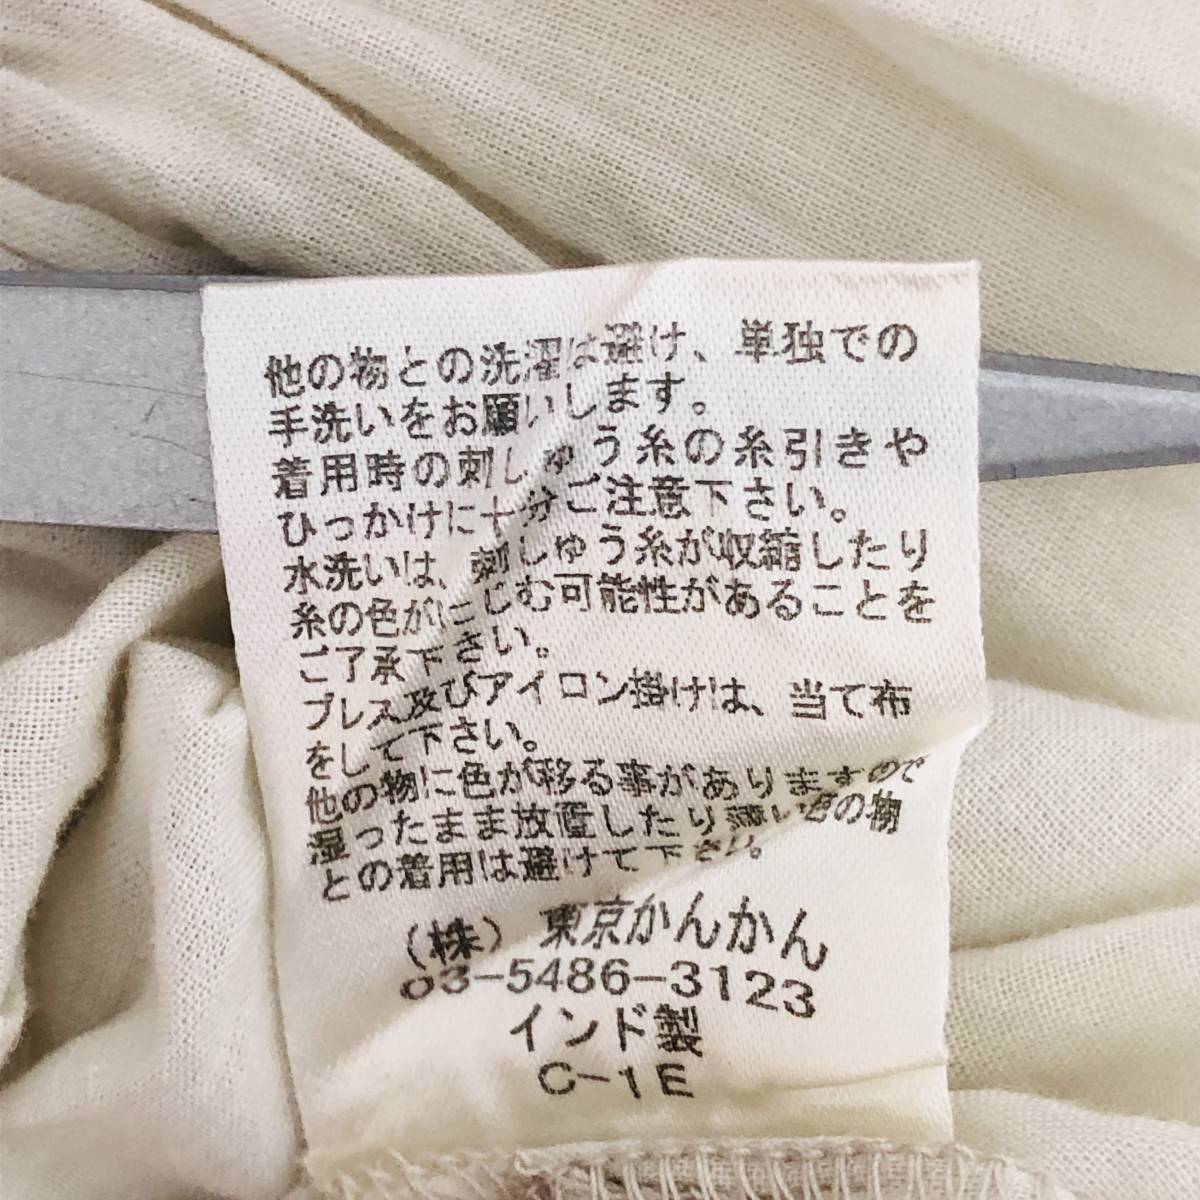 他の物との洗濯は避け、単独での
手洗いをお願いします。
着用時の刺しゅう糸の糸引きや
ひっかけに十分ご注意下さい。
水洗いは、刺しゅう糸が収縮したり
糸の色がにじむ可能性があることを
ご了承下さい。
プレス及びアイロン掛けは、当て布
をして下さい。
他の物に色が移る事がありますので
湿ったまま放置したり薄い色の物
との着用は避けて下さい。
(株)東京かんかん
03-5486-3123
インド製
C-1E